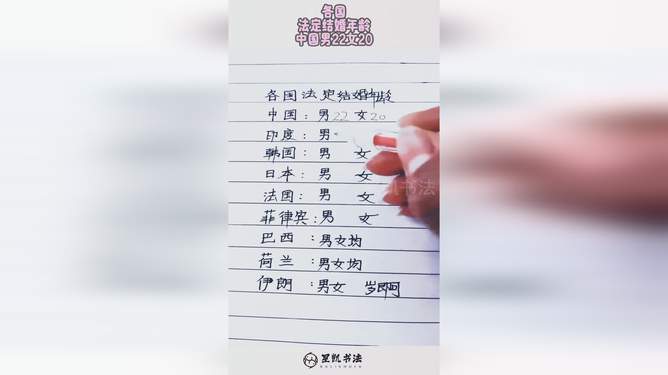 各国
法定结婚年龄
中国男22女20
各国法定结婚年龄
中国：男22 女20
印度：男
韩国：男 女
日本：男 女
法国：男 女
菲律宾：男 女
巴西：男女均
荷兰：男女均
伊朗：男女 岁即可
书法